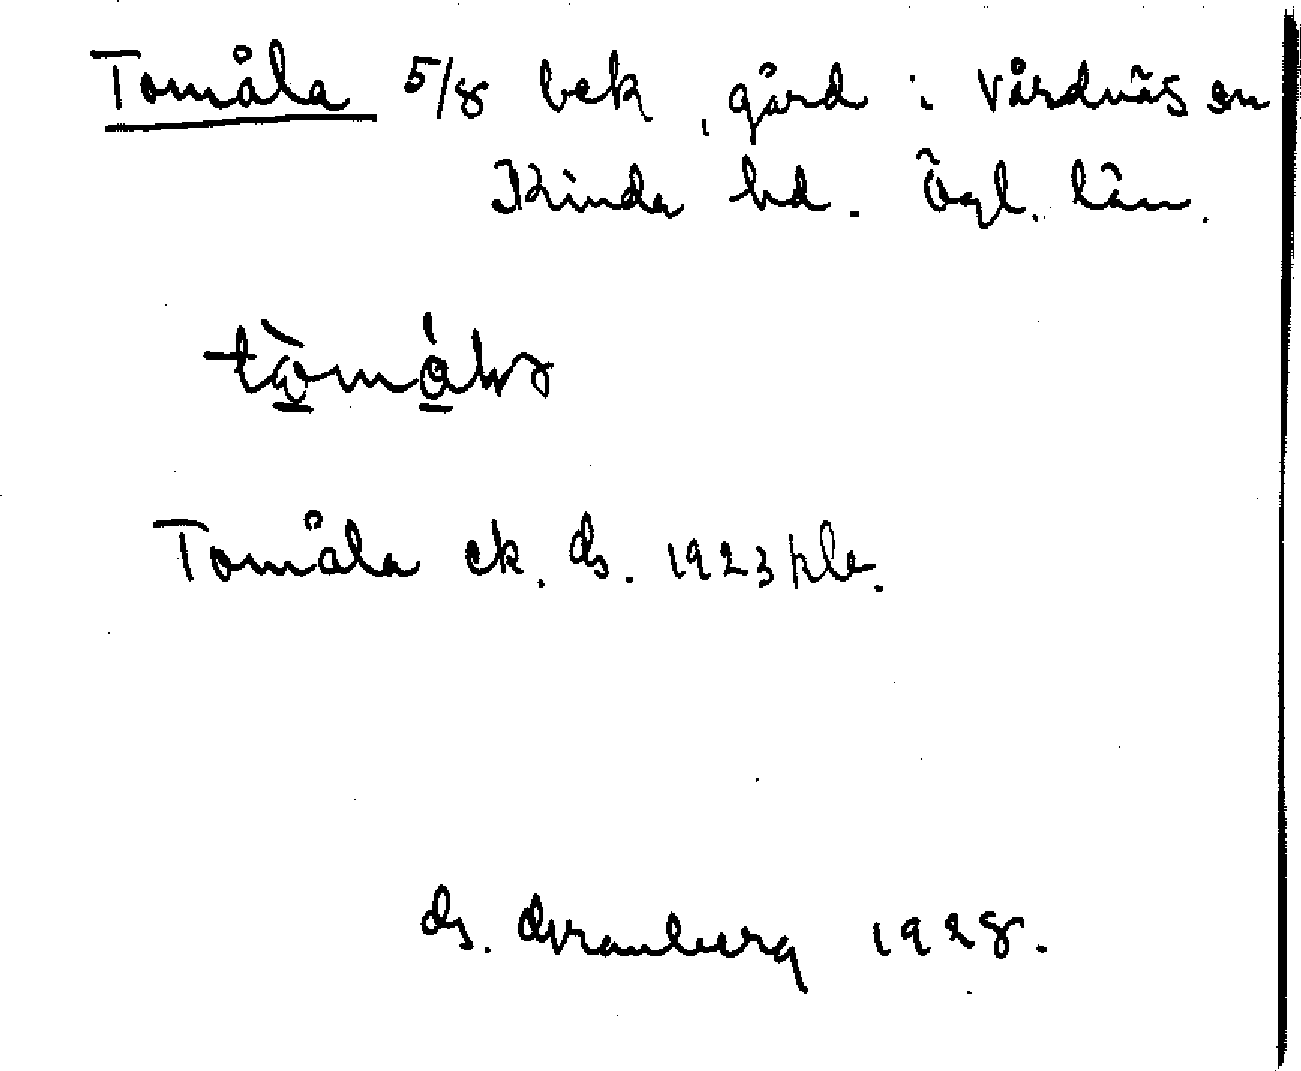 Tomåla 5/8 bek, gård i Vårdnäs sn
Kinda hd. Ögl. län.
Tomåla ek. ds. 1923
1928.